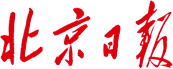 北京日报